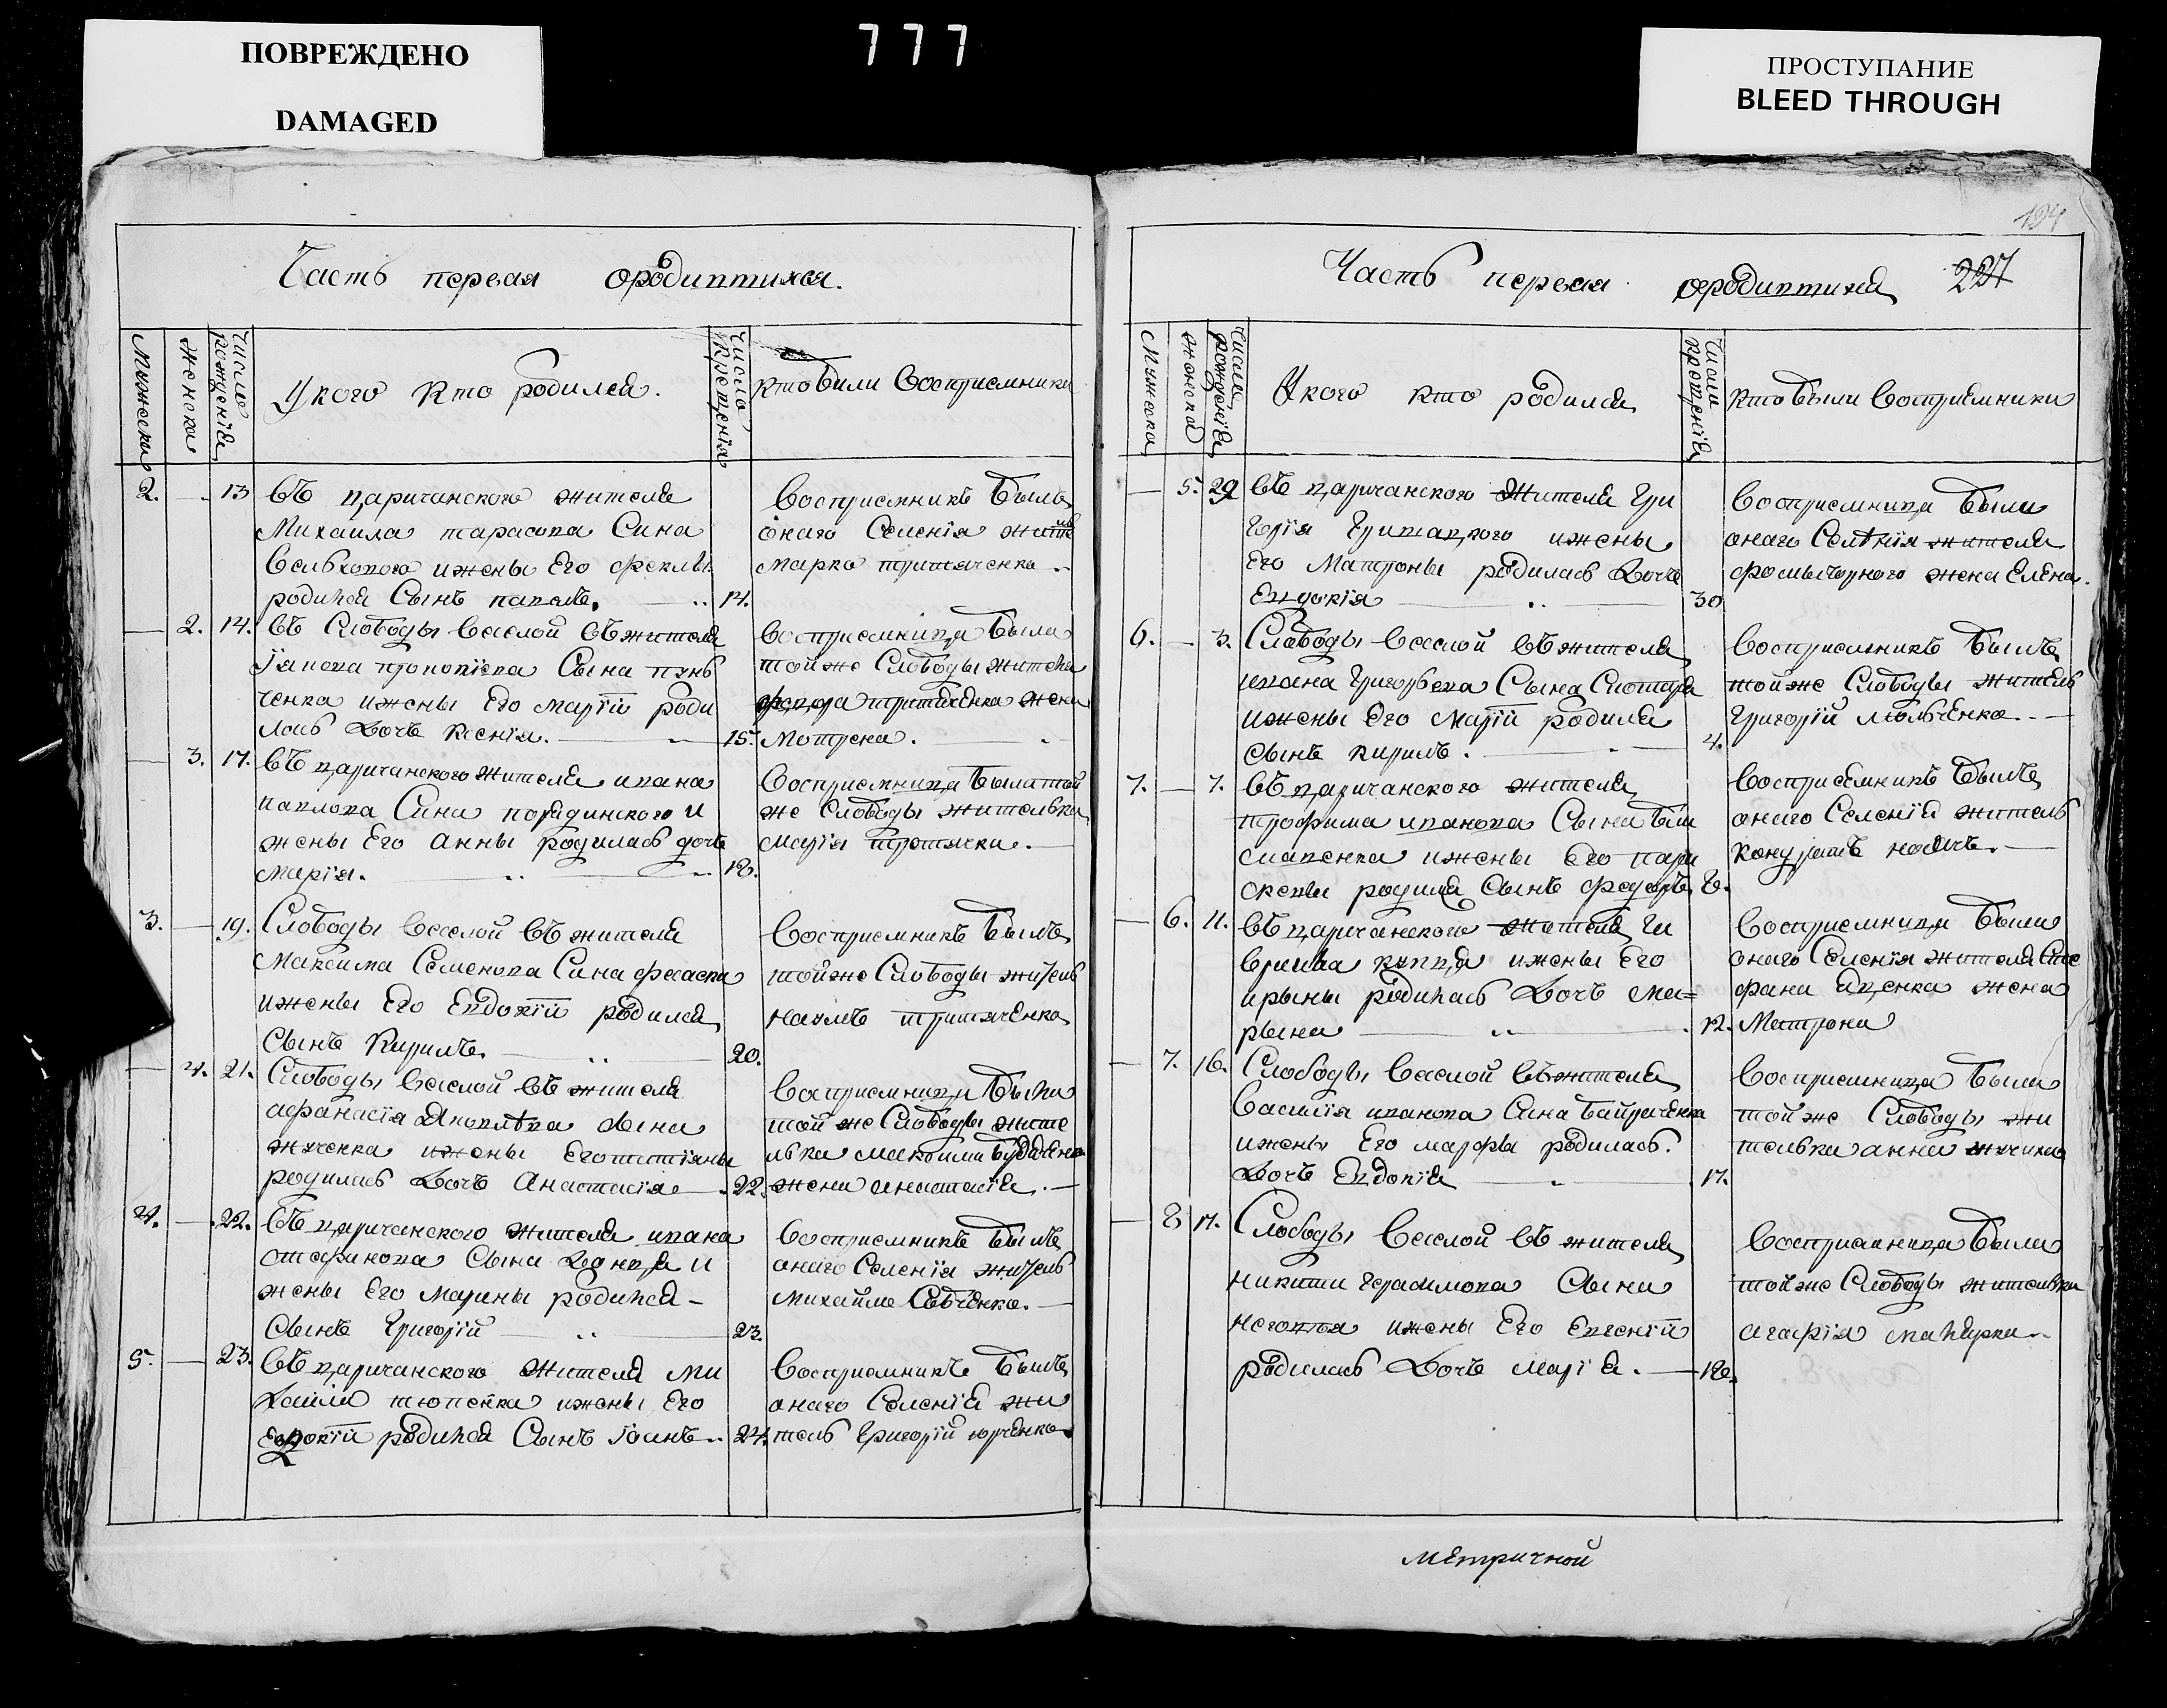 ПОВРЕЖДЕНО
DAMAGED
777
ПРОСТУПАНИЕ
BLEED THROUGH
Часть первая ородившихся.
Мужеска
женска
Число рождения
У кого Кто родился.
Число крещения
кто были Восприемники
2. — 13 въ царичанского жителя
Михаила тарасова Сина
и жены Его феклы
родился Сынъ павелъ. 14.
Восприемникъ былъ
онаго Селенія
марко притяченко
— 2. 14. въ Слободы Веселой въ жителя
прокопіева Сына
ченка и жены Его маріи роди
лась Дочъ Ксенія. 15.
Восприемница была
той же Слободы жителя
притяченка жена
Мотрена.
— 3. 17. въ царичанского жителя ивана
павлова Сина и
жены Его Анны родилась дочъ
марія. 18.
Восприемница была той
же Слободы жителька
марія
3. — 19. Слободы Веселой въ жителя
Максима Семенова Сина
и жены Его Евдокіи родился
Сынъ Кирилъ. 20.
Восприемникъ былъ
той же Слободы житель
наумъ притяченко
— 4. 21. Слободы Веселой въ жителя
афанасія Яковлева сина
и жены Его татіяны
родилась Дочъ Анастасія 22.
Восприемница была
той же Слободы жите
лька максима
жена анастасія.
4. — 22. въ царичанского жителя ивана
Сына и
жены Его Марины родился
Сынъ Григорій 23.
Восприемникъ былъ
онаго Селенія житель
Михайло Савченко.
5. — 23. въ царичанского жителя ми
хайла и жены Его
Евдокіи родился Сынъ іоанъ 24.
Восприемникъ былъ
онаго Селенія жи
тель Григорій юрченко
194
Часть первая ородившихся 227
Мужеска
женска
Число рождения
У кого кто родился
Число крещения
кто были Восприемники
— 5. 29 въ царичанского жителя Гри
горія и жены
Его Матроны родилась Дочъ
Евдокія 30
Восприемница была
онаго Селенія жителя
фомы чорного жена Елена.
6. — 3. Слободы Веселой въ жителя
ивана Григорьева Сына
и жены Его Маріи родился
Сынъ Кирилъ. 4.
Восприемникъ былъ
той же Слободы житель
Григорій
7. — 7. въ царичанского жителя
трофима иванова Сына
и жены Его пара
скевы родился Сынъ федоръ 8.
Восприемникъ былъ
онаго Селенія житель
Кондратъ носачъ.
— 6. 11. въ царичанского жителя Га
врила и жены Его
ирыны родилась Дочъ Ма=
рына 12.
Восприемница была
онаго Селенія жителя Сте
фана жена
Матрона
— 7. 16. Слободы Веселой въ жителя
Василія иванова Сина
и жены Его марфы родилась
Дочъ Евдокія 17.
Восприемница была
той же Слободы жи
телька анна
— 8 17. Слободы Веселой въ жителя
никиты Герасимова Сына
и жены Его Евгеніи
родилась Дочъ Марія. 18.
Восприемница была
той же Слободы жителька
агафія
метричной